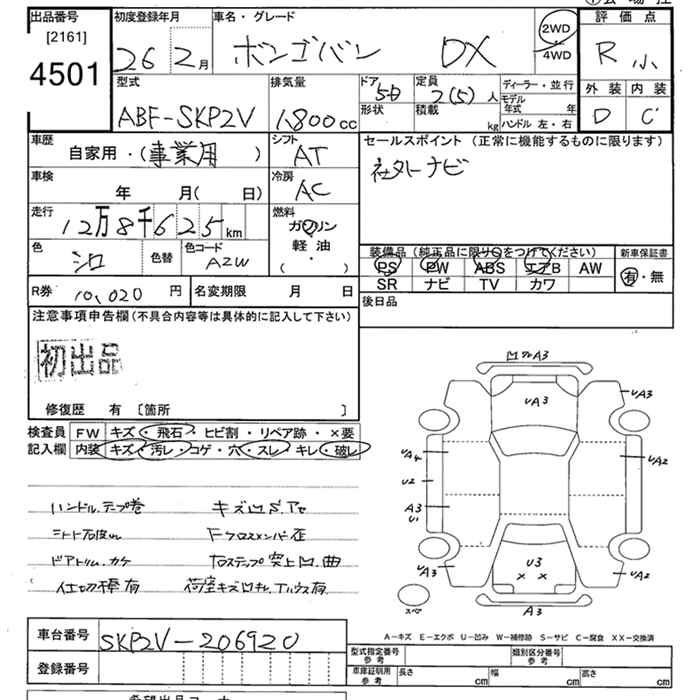 出品番号
[2161]
4501
初度登録年月
26 2月
車名・グレード
ボンゴバン DX
2WD
4WD
評価点
R 小
外装 内装
D C
型式
ABF-SKP2V
排気量
1,800cc
ドア
5D
形状
定員
2(5)人
積載
kg
ディーラー・並行
モデル年式 年
ハンドル 左・右
車歴
自家用・(事業用)
シフト
AT
車検
年 月(日)
冷房
AC
走行
12万8千625km
燃料
ガソリン
軽油・
( )
色
シロ
色替
色コード
AZW
セールスポイント(正常に機能するものに限ります)
社外ナビ
装備品(純正品に限り○をつけてください)
PS PW ABS エアB AW
SR ナビ TV カワ
新車保証書
有・無
R券 10,020円
名変期限 月 日
後日品
注意事項申告欄(不具合内容等は具体的に記入して下さい)
初出品
修復歴 有 [箇所 ]
検査員
記入欄
FW キズ・飛石・ヒビ割・リペア跡・×要
内装 キズ・汚レ・コゲ・穴・スレ・キレ・破レ
ハンドル、テープ巻 キズ凹S、アセ
Fクロスメンバー歪
ドアトリム、カケ 右ステップ突上凹、曲
仕切棒有
車台番号 SKP2V-206920
登録番号
凹 A3
UA3
UA3
UA4
U2
A3
U1
UA2
UA3
U3
× ×
UA2
A3
スペア
A-キズ E-エクボ U-凹み W-補修跡 S-サビ C-腐食 XX-交換済
型式指定番号
参考
類別区分番号
参考
車庫証明用
参考
長さ cm 幅 cm 高さ cm